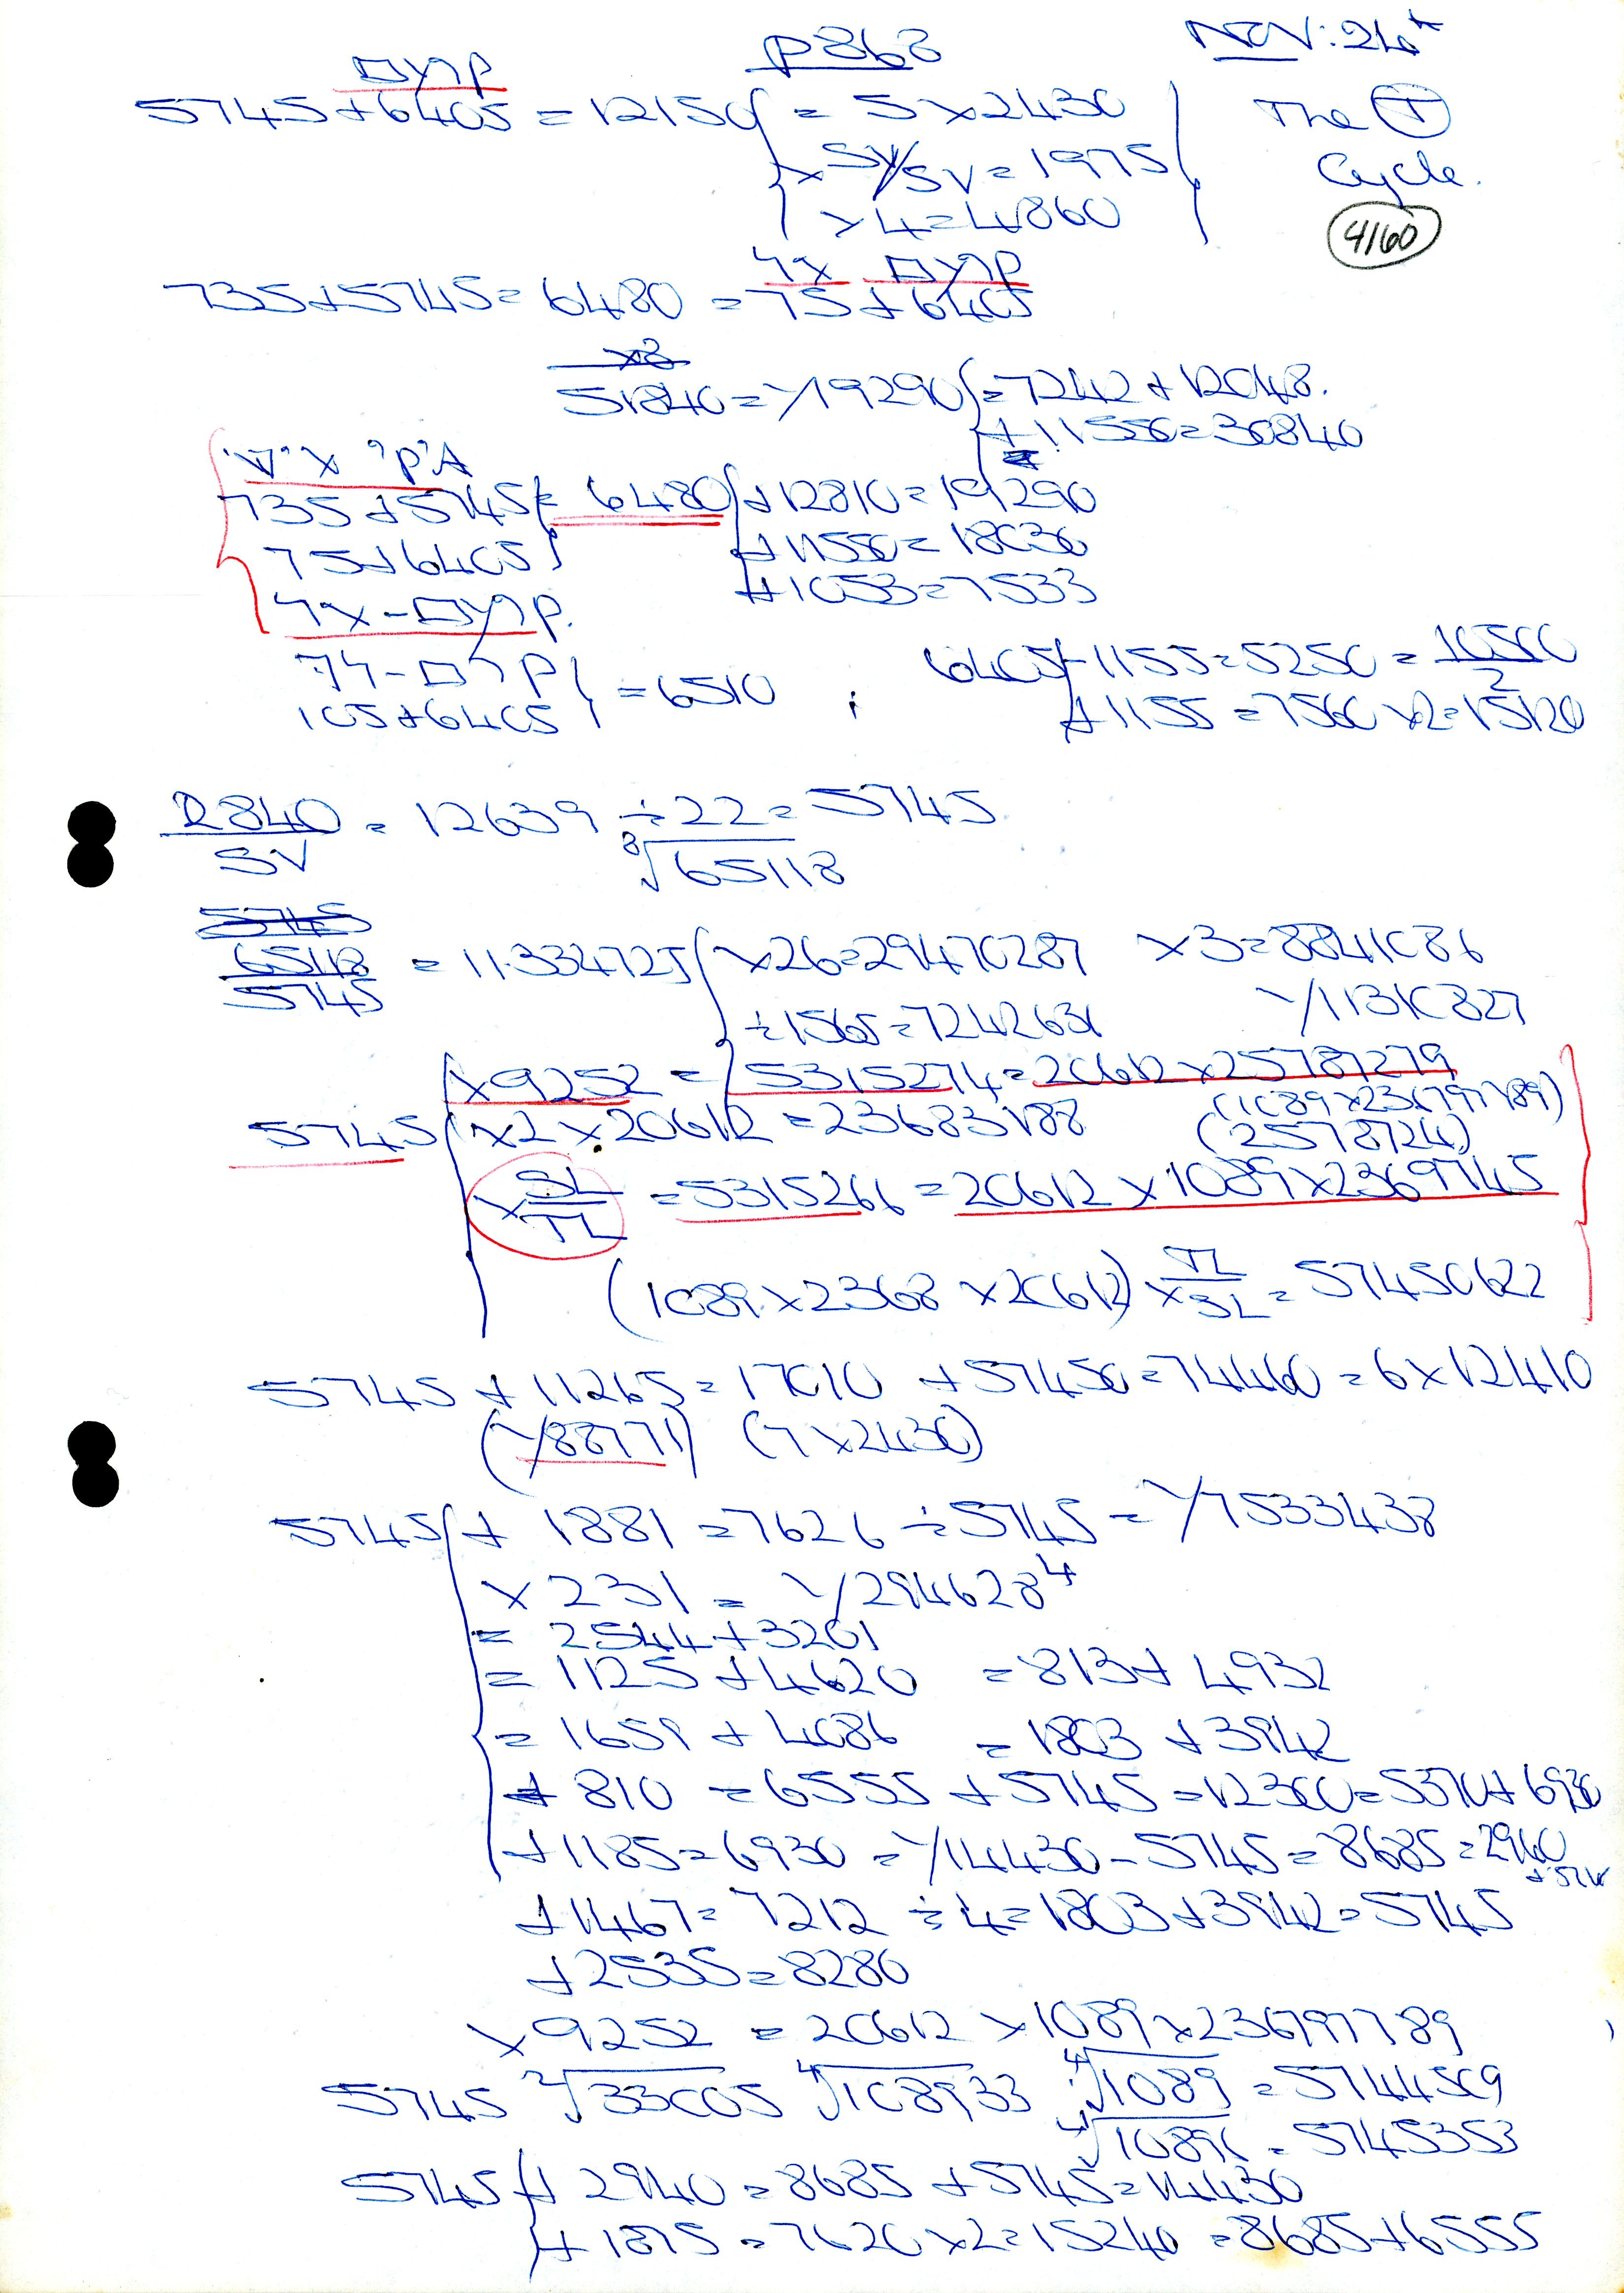 P868
NOV: 24th
5745 + 6405 = 12150 { = 5 × 2430
The (T)
× SY/SV = 1975
Cycle.
× 4 = 4860
4160
735 + 5745 = 6480 = 75 + 6405
×8
51840 = √19290 { = 7242 + 12048.
+ 11550 = 30840
735 + 5745 } = 6480 { + 12810 = 19290
75 + 6405 } + 11550 = 18030
+ 1053 = 7533
105 + 6405 } = 6510 ; 6405 { - 1155 = 5250 = 10500/2
+ 1155 = 7560 × 2 = 15120
12840/SV = 12639 ÷ 22 = 5745
∛65118
5745
65118/5745 = 11.334725 { × 26 = 29470287 × 3 = 8841086
÷ 1565 = 7242631 √11310827
× 9252 = 5315274 = 20612 × 25787279
(1089 × 236797789)
5745 { × 2 × 20612 = 23683188 (2578724)
× SL/TL = 5315266 = 20612 × 1089 × 2369745
(1089 × 2368 × 20612) × TL/SL = 57450622
5745 + 11265 = 17010 + 57450 = 74460 = 6 × 12410
(√88771) (7 × 2430)
5745 { + 1881 = 7626 ÷ 5745 = √7533438
× 231 = √2946284
= 2544 + 3201
= 1125 + 4620 = 813 + 4932
= 1659 + 4086 = 1803 + 3942
+ 810 = 6555 + 5745 = 12300 = 5370 + 6930
+ 1185 = 6930 = √14430 - 5745 = 8685 = 2940
+ 1467 = 7212 ÷ 4 = 1803 + 3942 = 5745
+ 2535 = 8280
× 9252 = 20612 × 1089 × 236797789
5745 ∛33005 ∜108933 ∜1089 = 5744509
∜10891 = 5745353
5745 { + 2940 = 8685 + 5745 = 14430
+ 1875 = 7620 × 2 = 15240 = 8685 + 6555